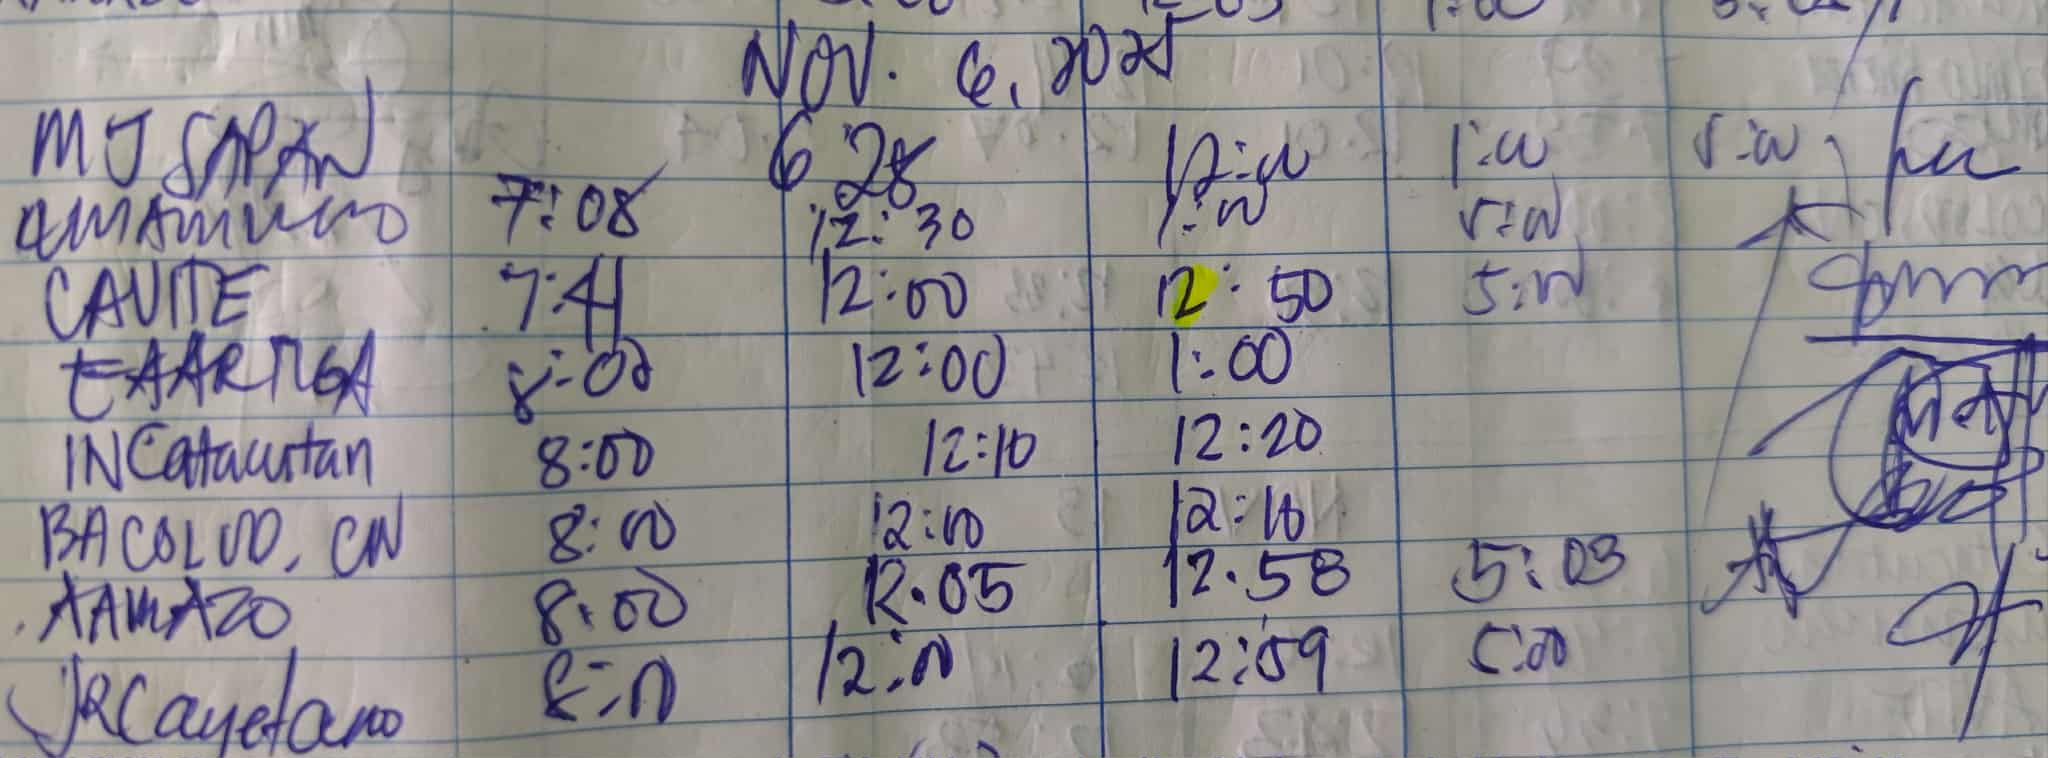 NOV. 6, 2025
MJ SAPAN 6:28 12:00 1:00 5:00
7:08 12:30 1:00 5:00
CAVITE 7:41 12:00 12:50 5:00
EAARTIGA 8:00 12:00 1:00
INCatacutan 8:00 12:10 12:20
BACOLOD, CN 8:00 12:10 12:10
AAMAZO 8:00 12:05 12:58 5:03
JRCayetano 8:00 12:00 12:59 5:00